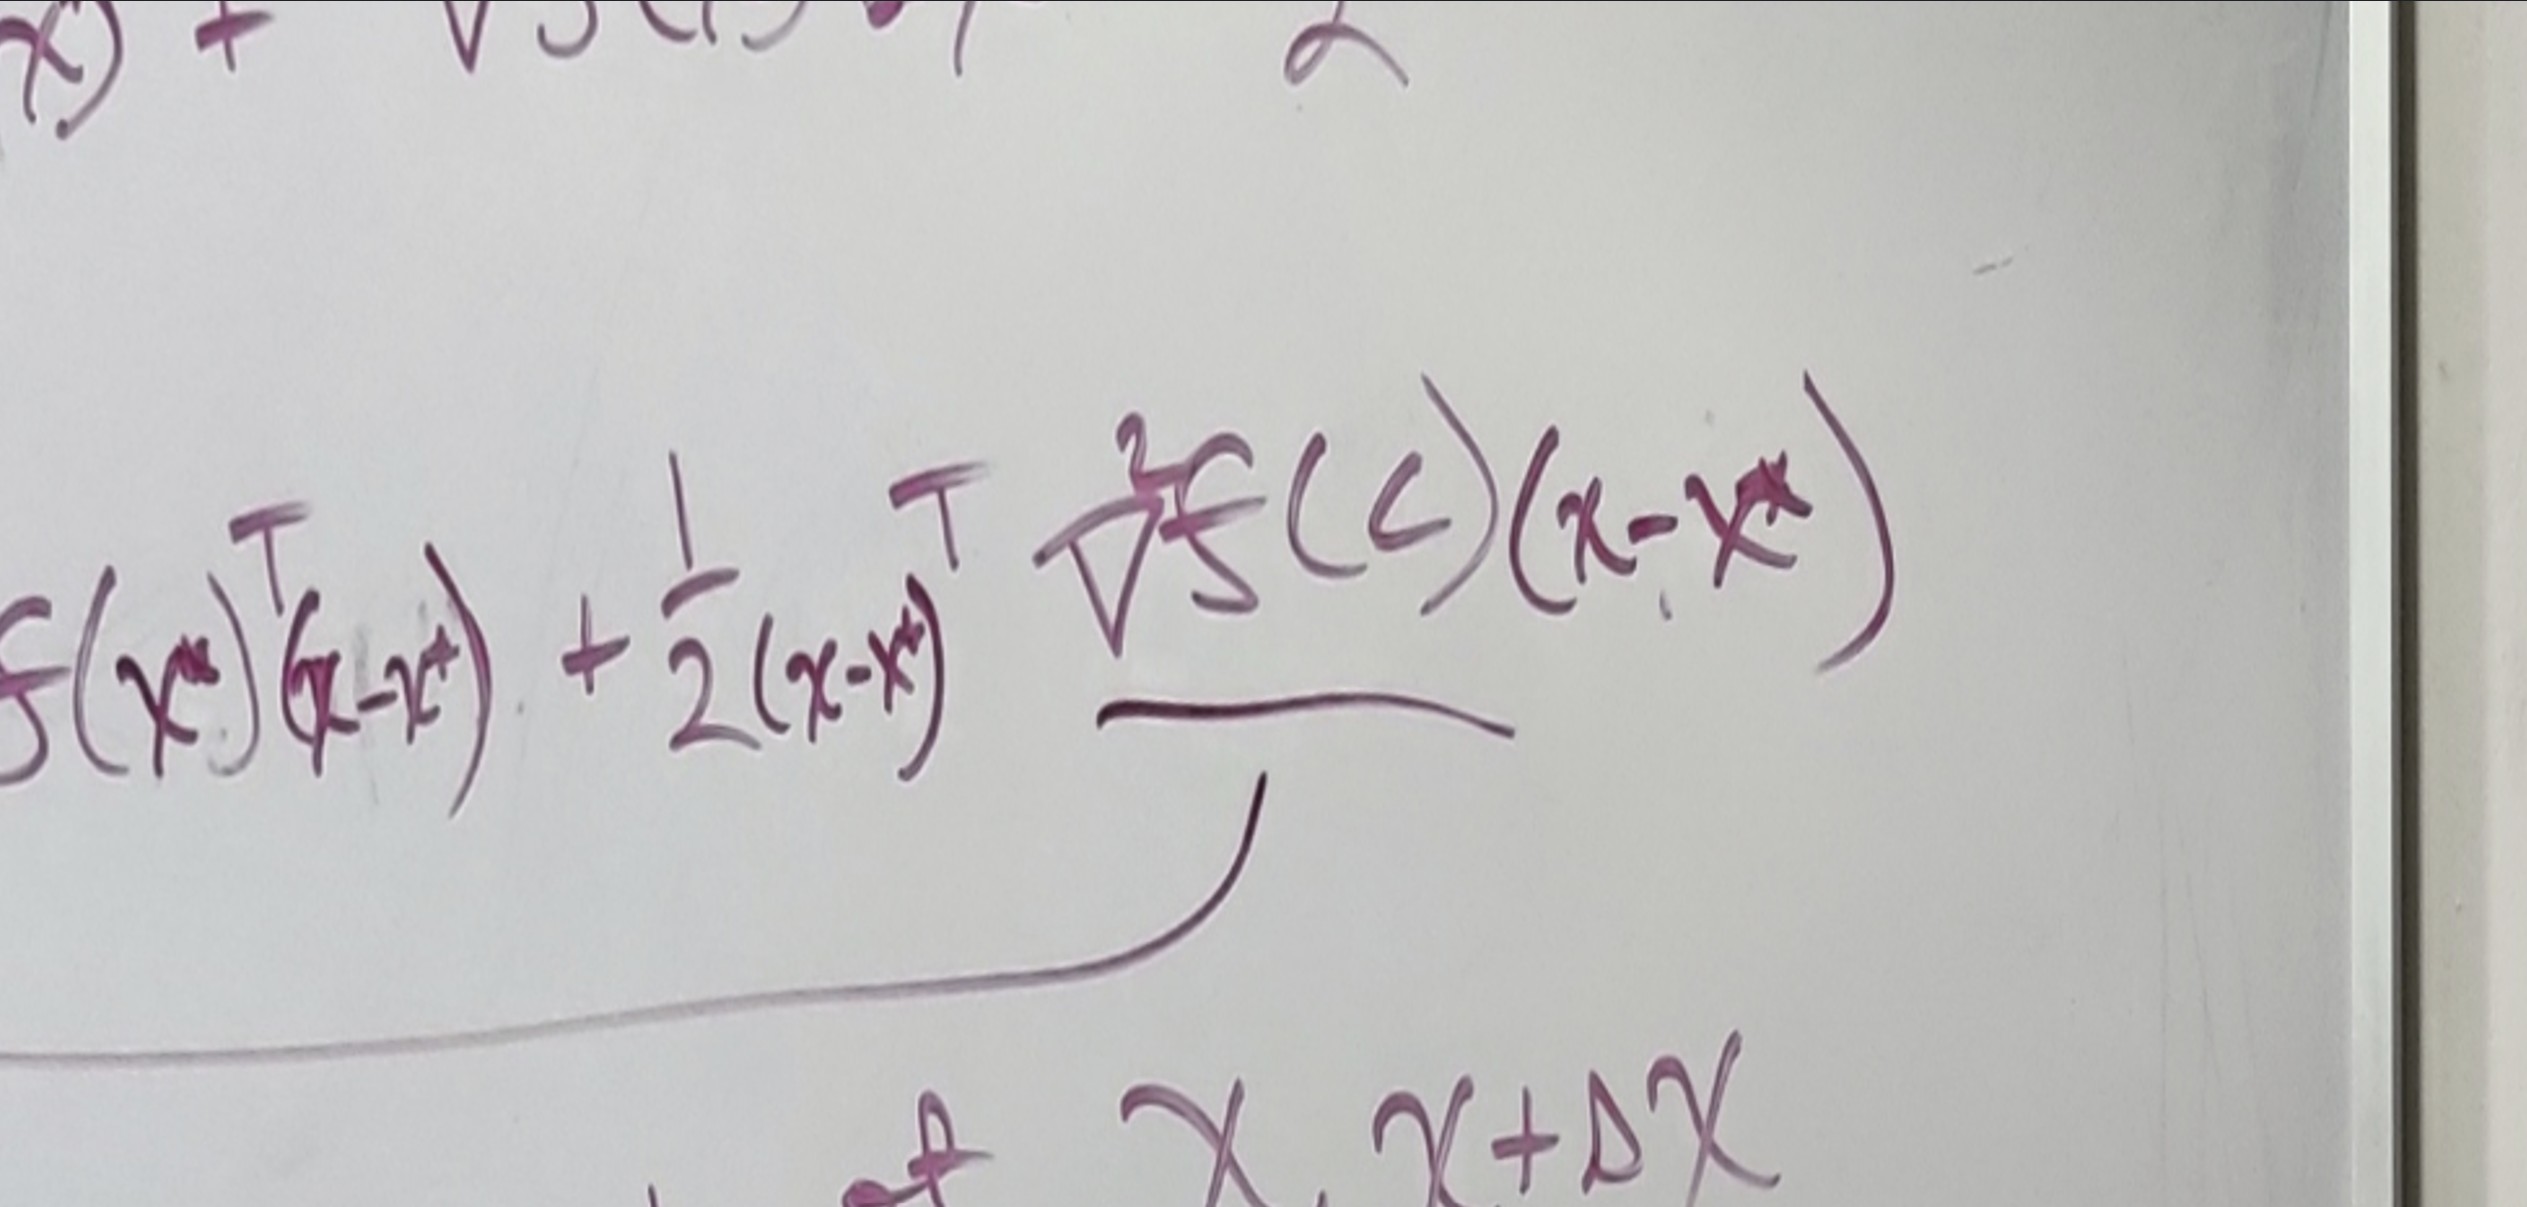 x) +
f(x*)ᵀ(x-x*) + 1/2 (x-x*)ᵀ ∇²f(c)(x-x*)
x, x+Δx